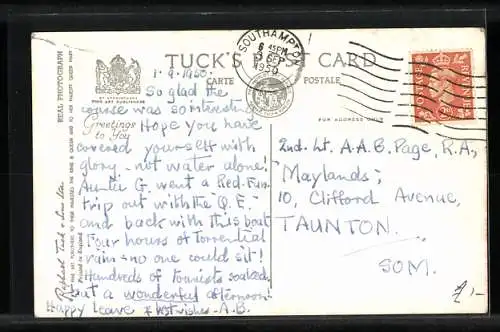 TUCK'S POST CARD
CARTE POSTALE
FOR ADDRESS ONLY
REAL PHOTOGRAPH
BY APPOINTMENT
FINE ART PUBLISHERS
Greetings
to You
Raphael Tuck & Sons Ltd.
Printed in England
SOUTHAMPTON
6 45PM
SEP
1950
POSTAGE
REVENUE
1.9.1950.
So glad the
course was so interesting
Hope you have
covered yourself with
glory - not water alone!
Auntie G. went a Red-Fun.
trip out with the "Q.E."
and back with this boat
Four hours of torrential
rain - no one could sit!
Hundreds of tourists soaked,
but a wonderful afternoon!
Happy Leave & best wishes - A.B.
2nd. Lt. A.A.B. Page, R.A.,
"Maylands",
10, Clifford Avenue,
TAUNTON.
SOM.